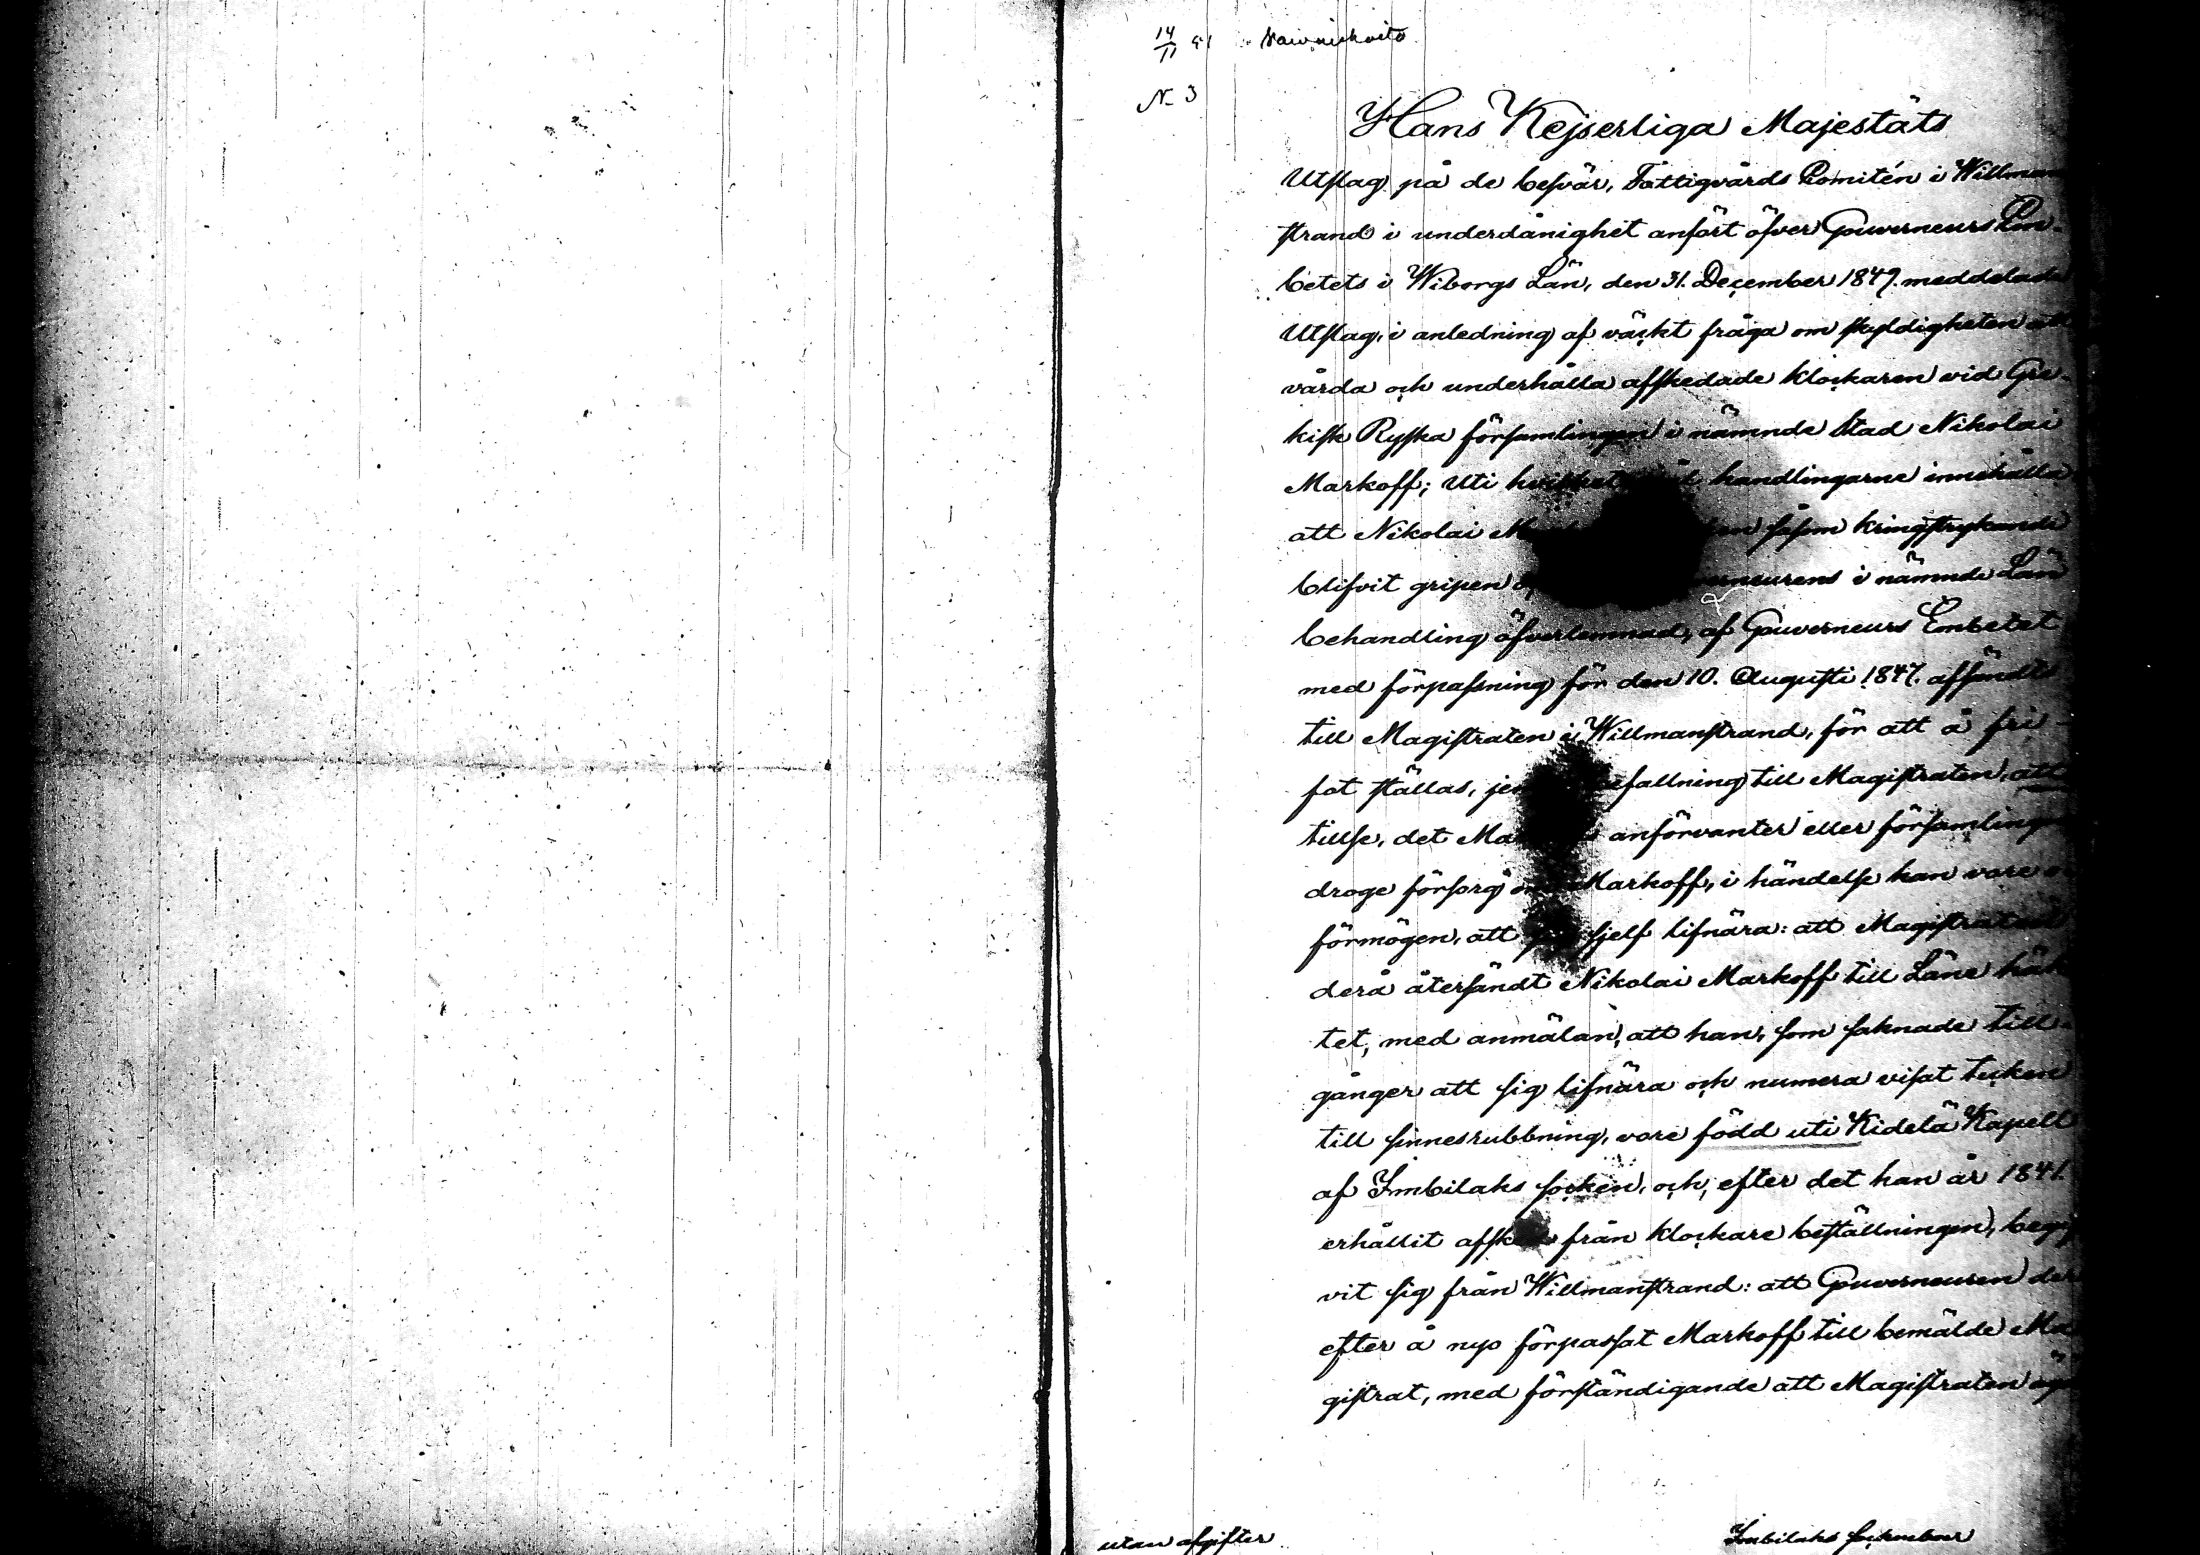 14/11 51 Vaivaishoito
N 3
Hans Kejserliga Majestäts
Utslag på de besvär, Fattigvårds Komitén i Willman
strand i underdånighet anfört öfver Gouverneurs Em-
betets i Wiborgs Län, den 31. December 1847. meddelade
Utslag, i anledning af väckt fråga om skyldigheten att
vårda och underhålla afskedade klockaren vid Gre-
kisk Ryska församlingen i nämnde Stad Nikolai
Markoff; Uti hvilket handlingarne innehålla
att Nikolai såsom kringstrykande
blifvit gripen i nämnde Län
behandling öfverlemnad, af Gouverneurs Embetet
med förpassning för den 10. Augusti 1847. afsändts
till Magistraten i Willmanstrand, för att å fri
fot ställas, befallning till Magistraten, att
tillse, det anförvanter eller församlingen
droge försorg om Markoff, i händelse han vore o
förmögen, att sig sjelf lifnära: att Magistraten
derå återsändt Nikolai Markoff till Läns häk
tet, med anmälan, att han, som saknade till-
gånger att sig lifnära och numera visat tecken
till sinnesrubbning, vore född uti Kidelä Kapell
af Imbilaks socken, och, efter det han år 1841.
erhållit afsked från klockare beställningen, begif
vit sig från Willmanstrand: att Gouverneuren der
efter å nyo förpassat Markoff till bemälde Ma
gistrat, med förständigande att Magistraten
utan afgifter
Imbilaks sockenboer